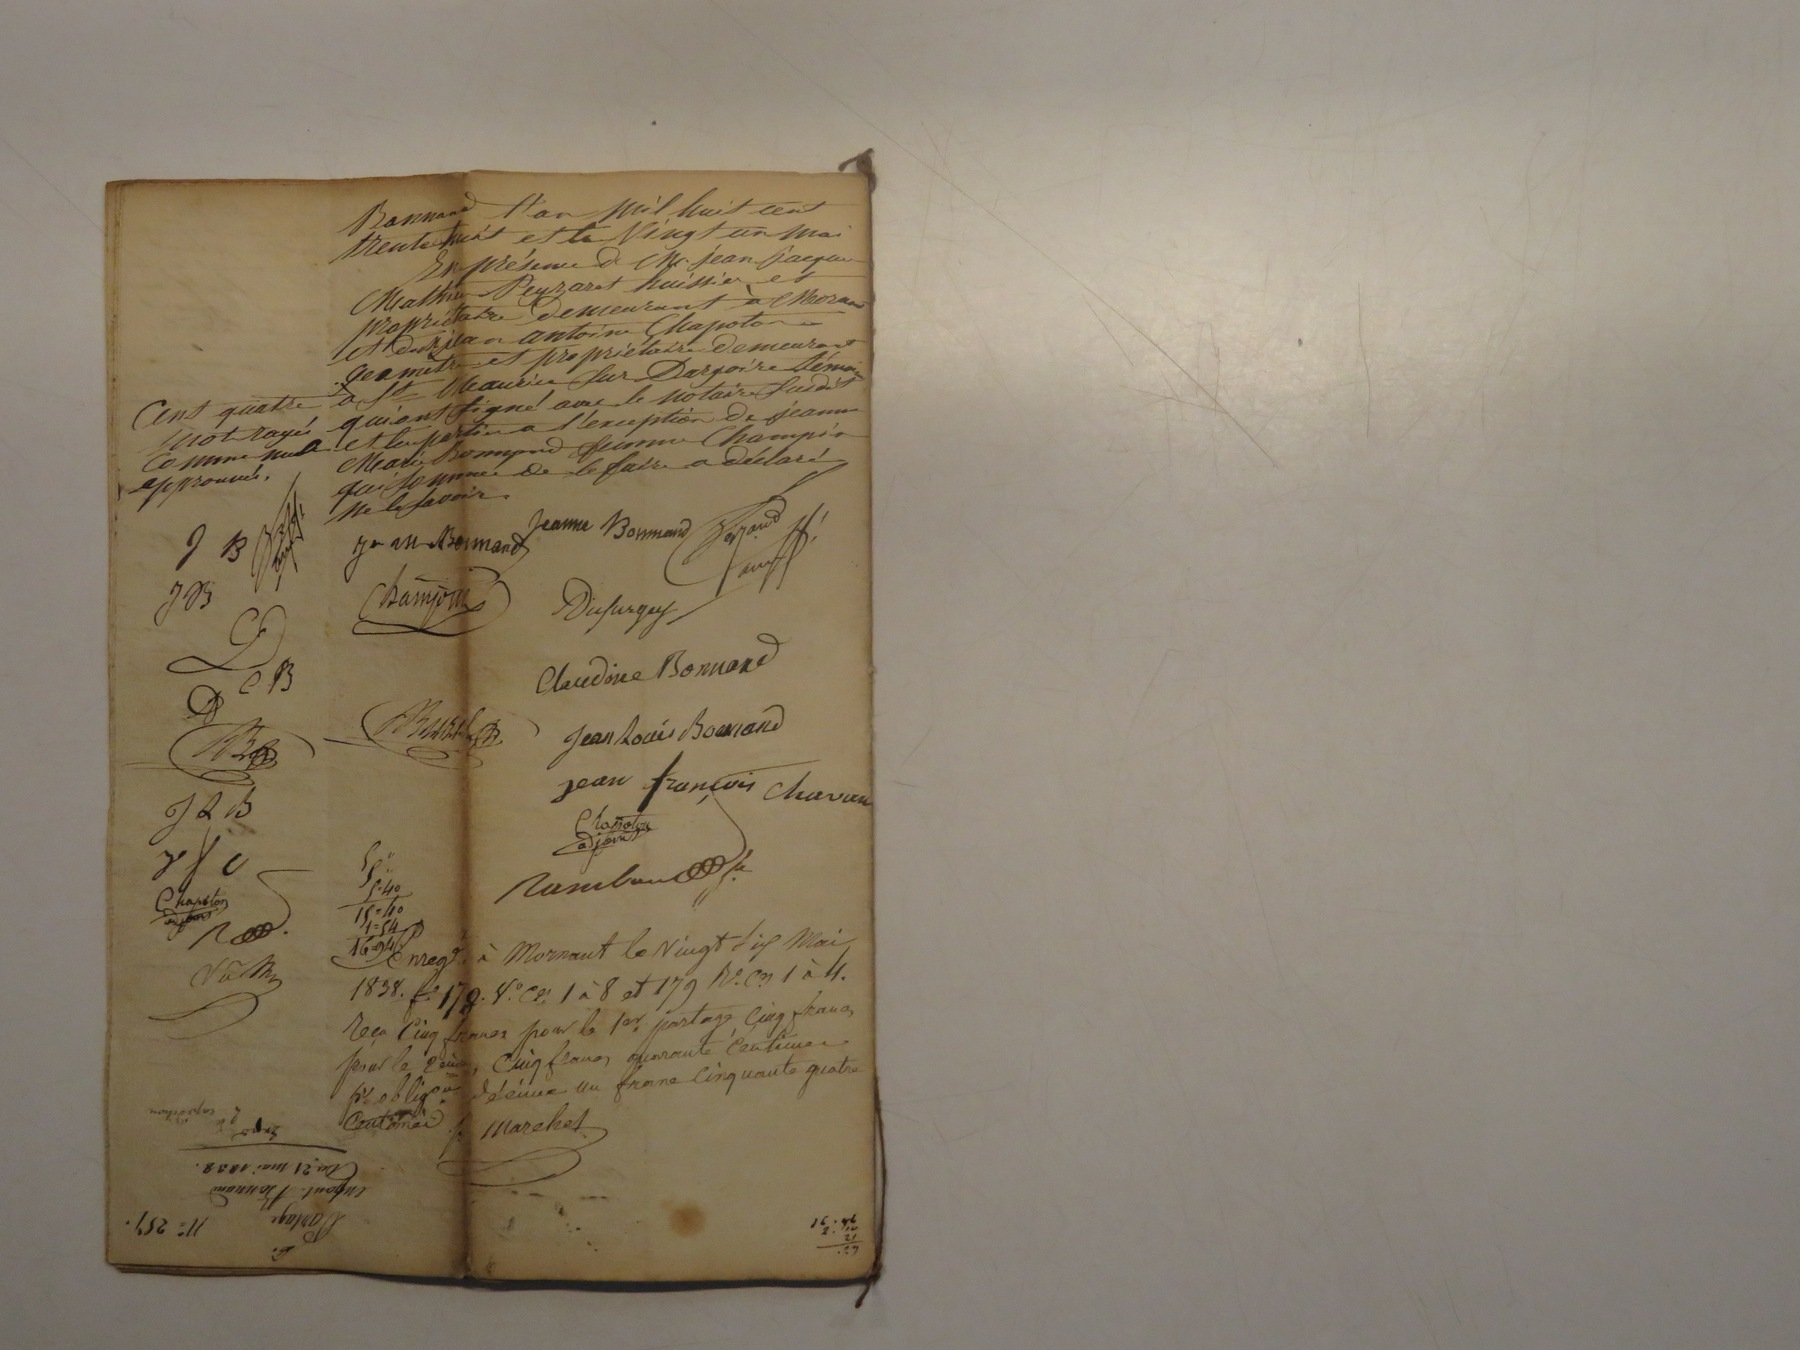 Bonnand l'an mil huit cent
trente huit et le Vingt un mai
En présence de Mr. jean jacques
Mathieu Peyzaret huissier et
propriétaire demeurant à Mornant
et de jean antoine Chapoton
géomètre et propriétaire demeurant
à St. Maurice sur Dargoire témoins
qui ont signé avec le notaire susdit
et les parties a l'exception de jeanne
Marie Bonnand femme Champin
qui sommée de le faire a déclaré
ne le savoir.
Cent quatre
mot rayés
comme nuls
approuvés.
J B
J B
C B
J L B
j f C
Chapoton
adjoint
Jeanne Bonnand
Bonnand
Dufurguy
Claudine Bonnand
Jean Louis Bonnand
jean françois Chavan
Chapoton
adjoint
5"
5.40
15=40
1=54
16=94
Enregé. à Mornant le Vingt dix Mai
1838. fo. 178. Vo. Ces. 1 à 8 et 179 Ro. Ces 1 à 4.
reçu Cinq francs pour le 1er. partage Cinq francs
pour le 2eme, Cinq francs quarante Centimes
pr. obligon. décime un franc Cinquante quatre
Centimes
Marchet
No. 257.
Partage
Bonnand
Du 21 mai 1838.
expédition